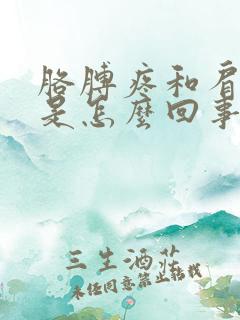 胳膊疼和肩
是怎麼回事
三生酒莊
未经同意禁止转载